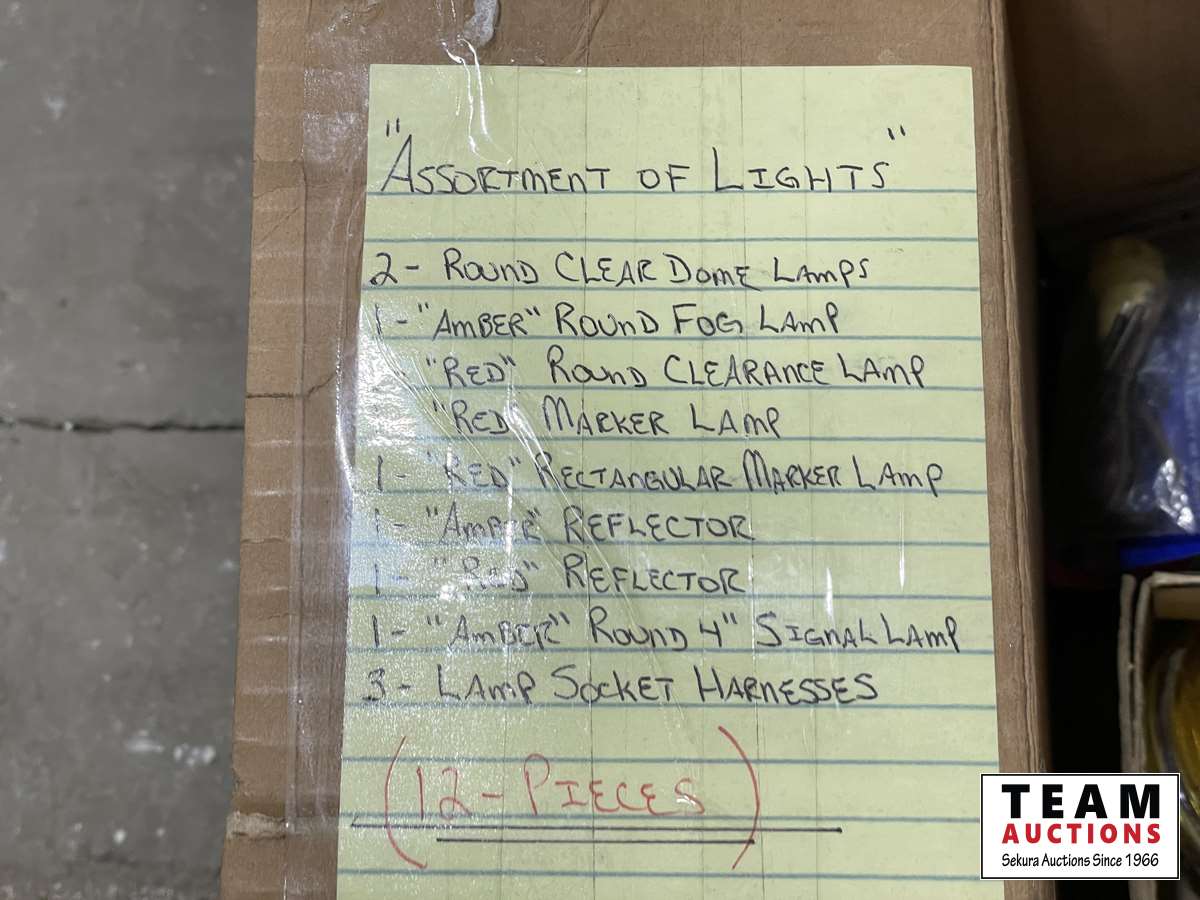 "Assortment of Lights"
2- Round Clear Dome Lamps
1- "Amber" Round Fog Lamp
- "Red" Round Clearance Lamp
"Red" Marker Lamp
1- "Red" Rectangular Marker Lamp
1- "Amber" Reflector
1- "Red" Reflector
1- "Amber" Round 4" Signal Lamp
3- Lamp Socket Harnesses
(12-Pieces)
TEAM
AUCTIONS
Sekura Auctions Since 1966